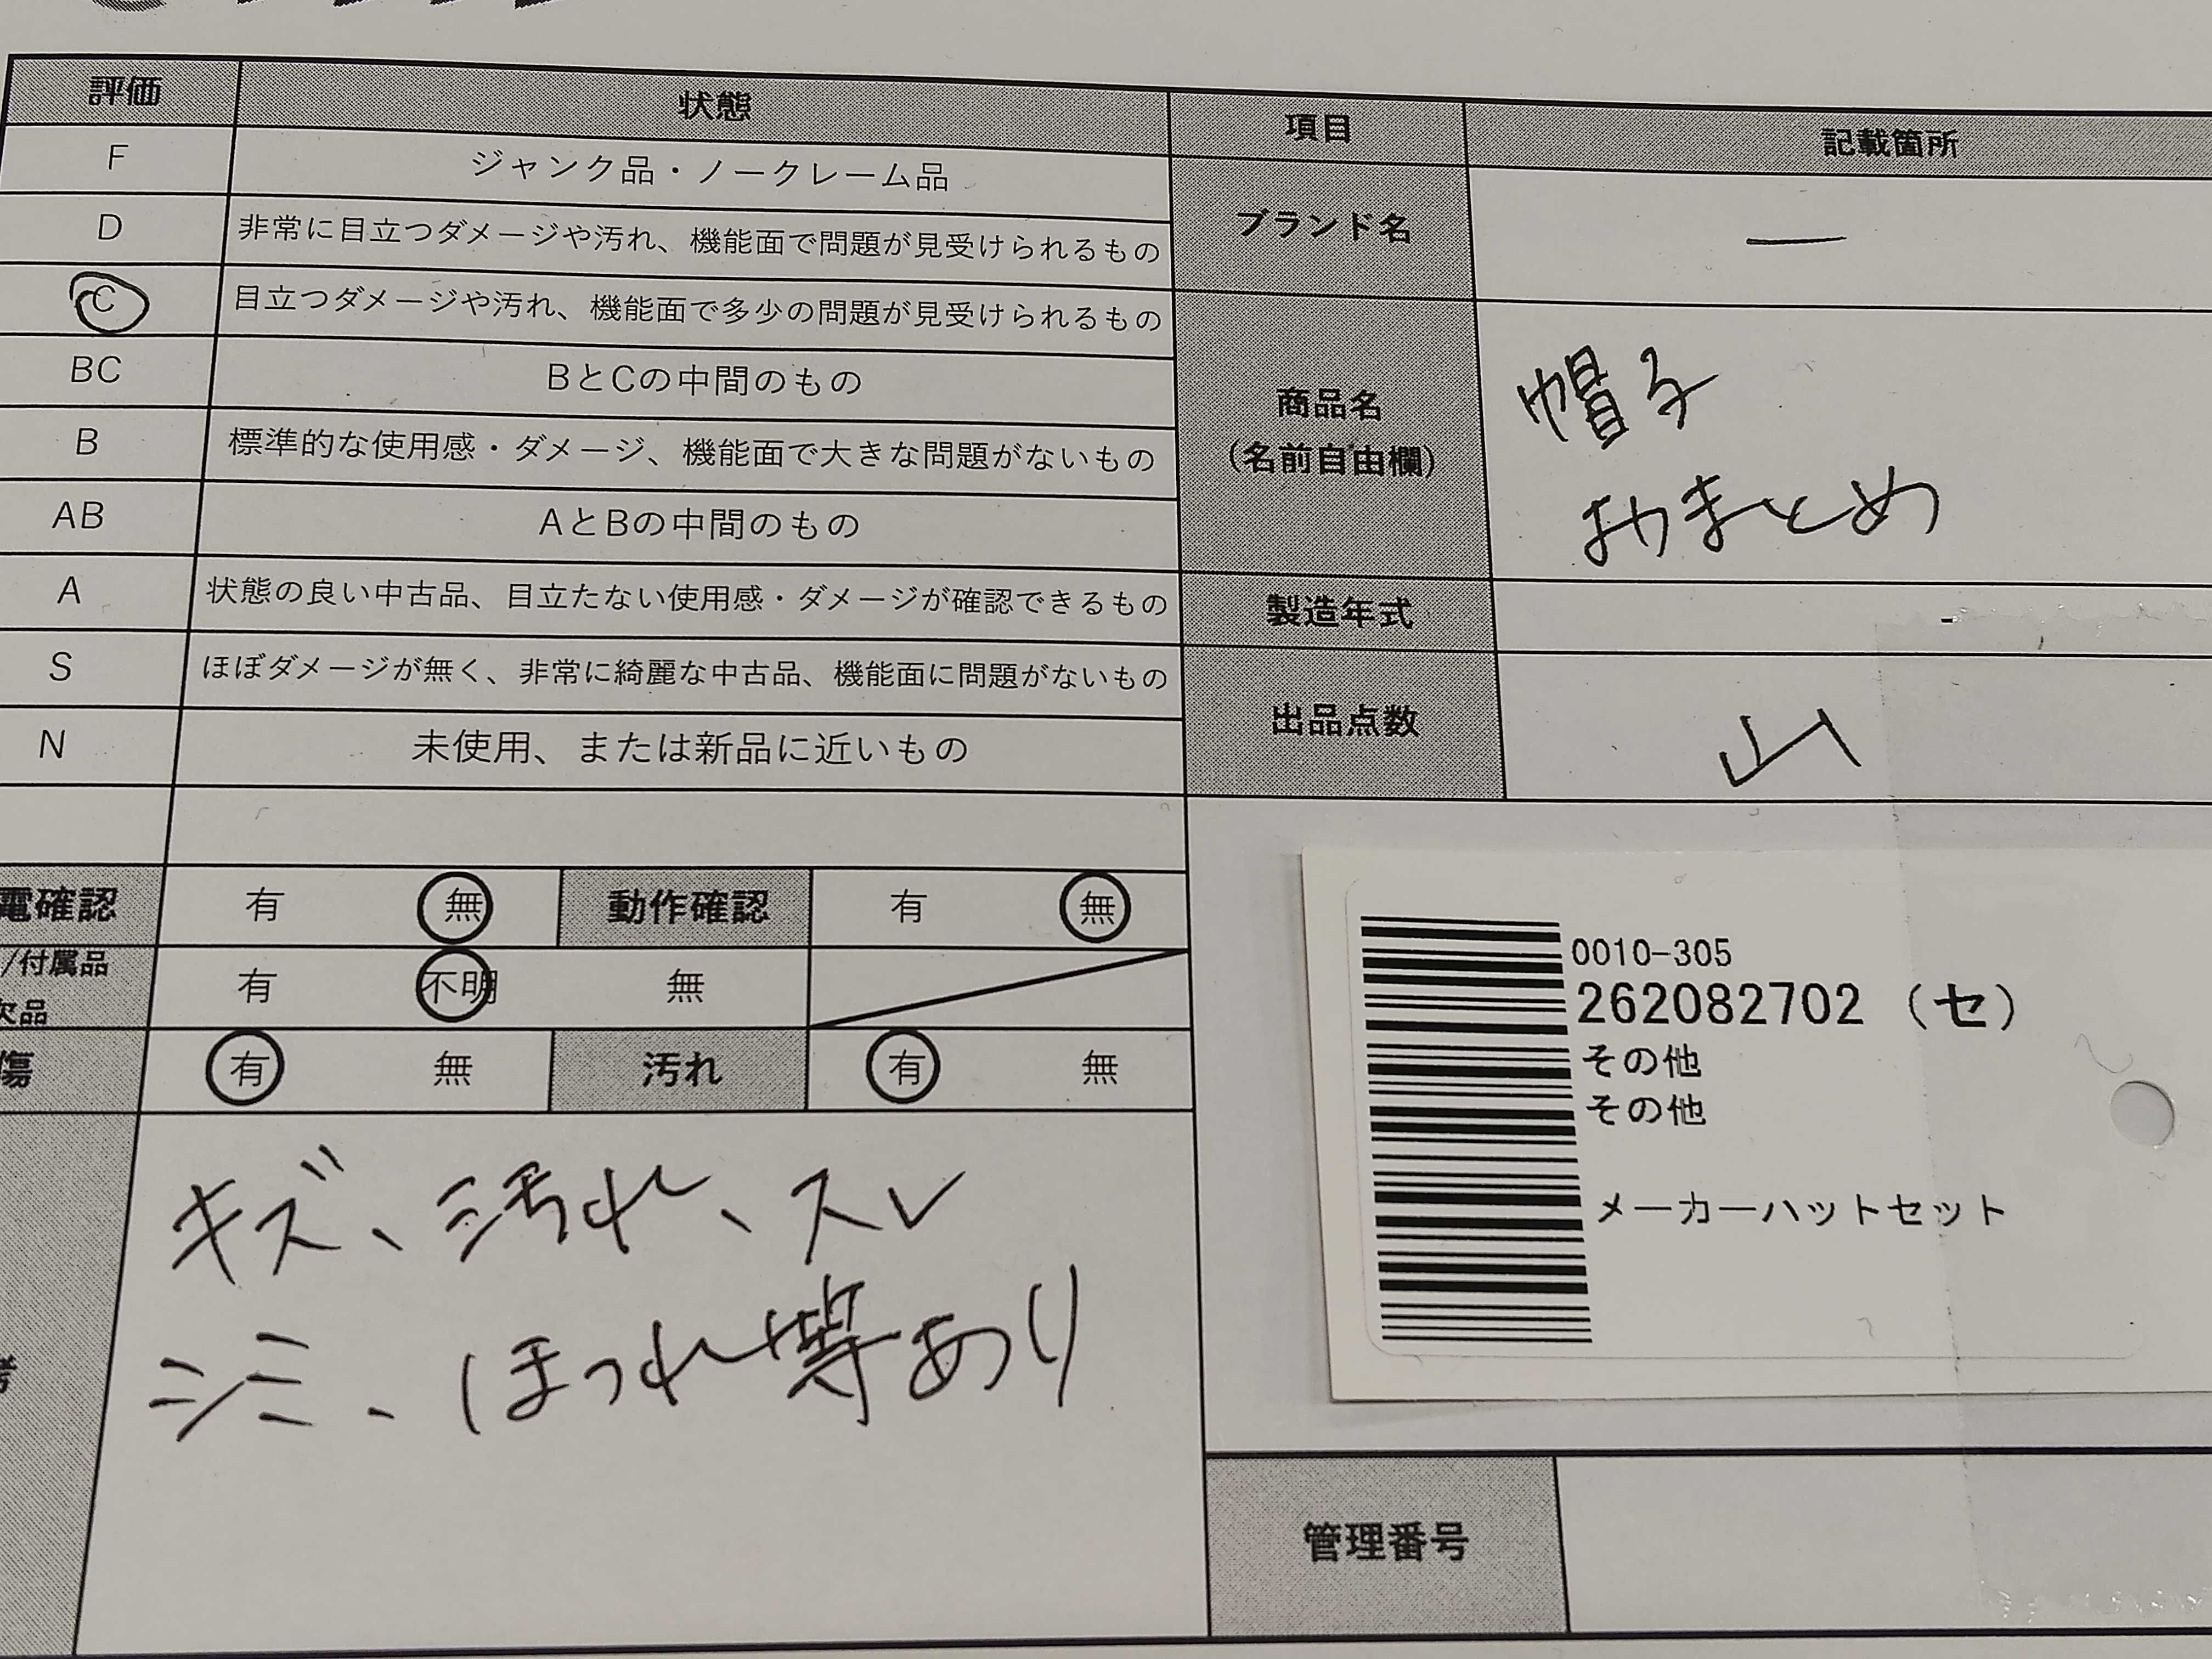 評価 状態 項目 記載箇所
F ジャンク品・ノークレーム品
D 非常に目立つダメージや汚れ、機能面で問題が見受けられるもの
ブランド名 ー
C 目立つダメージや汚れ、機能面で多少の問題が見受けられるもの
BC BとCの中間のもの
B 標準的な使用感・ダメージ、機能面で大きな問題がないもの
商品名
(名前自由欄)
帽子
おまとめ
AB AとBの中間のもの
A 状態の良い中古品、目立たない使用感・ダメージが確認できるもの
製造年式 -
S ほぼダメージが無く、非常に綺麗な中古品、機能面に問題がないもの
出品点数 山
N 未使用、または新品に近いもの
電確認 有 無 動作確認 有 無
/付属品
欠品
有 不明 無
傷 有 無 汚れ 有 無
キズ、汚れ、スレ
シミ、ほつれ等あり
考
0010-305
262082702 (セ)
その他
その他
メーカーハットセット
管理番号